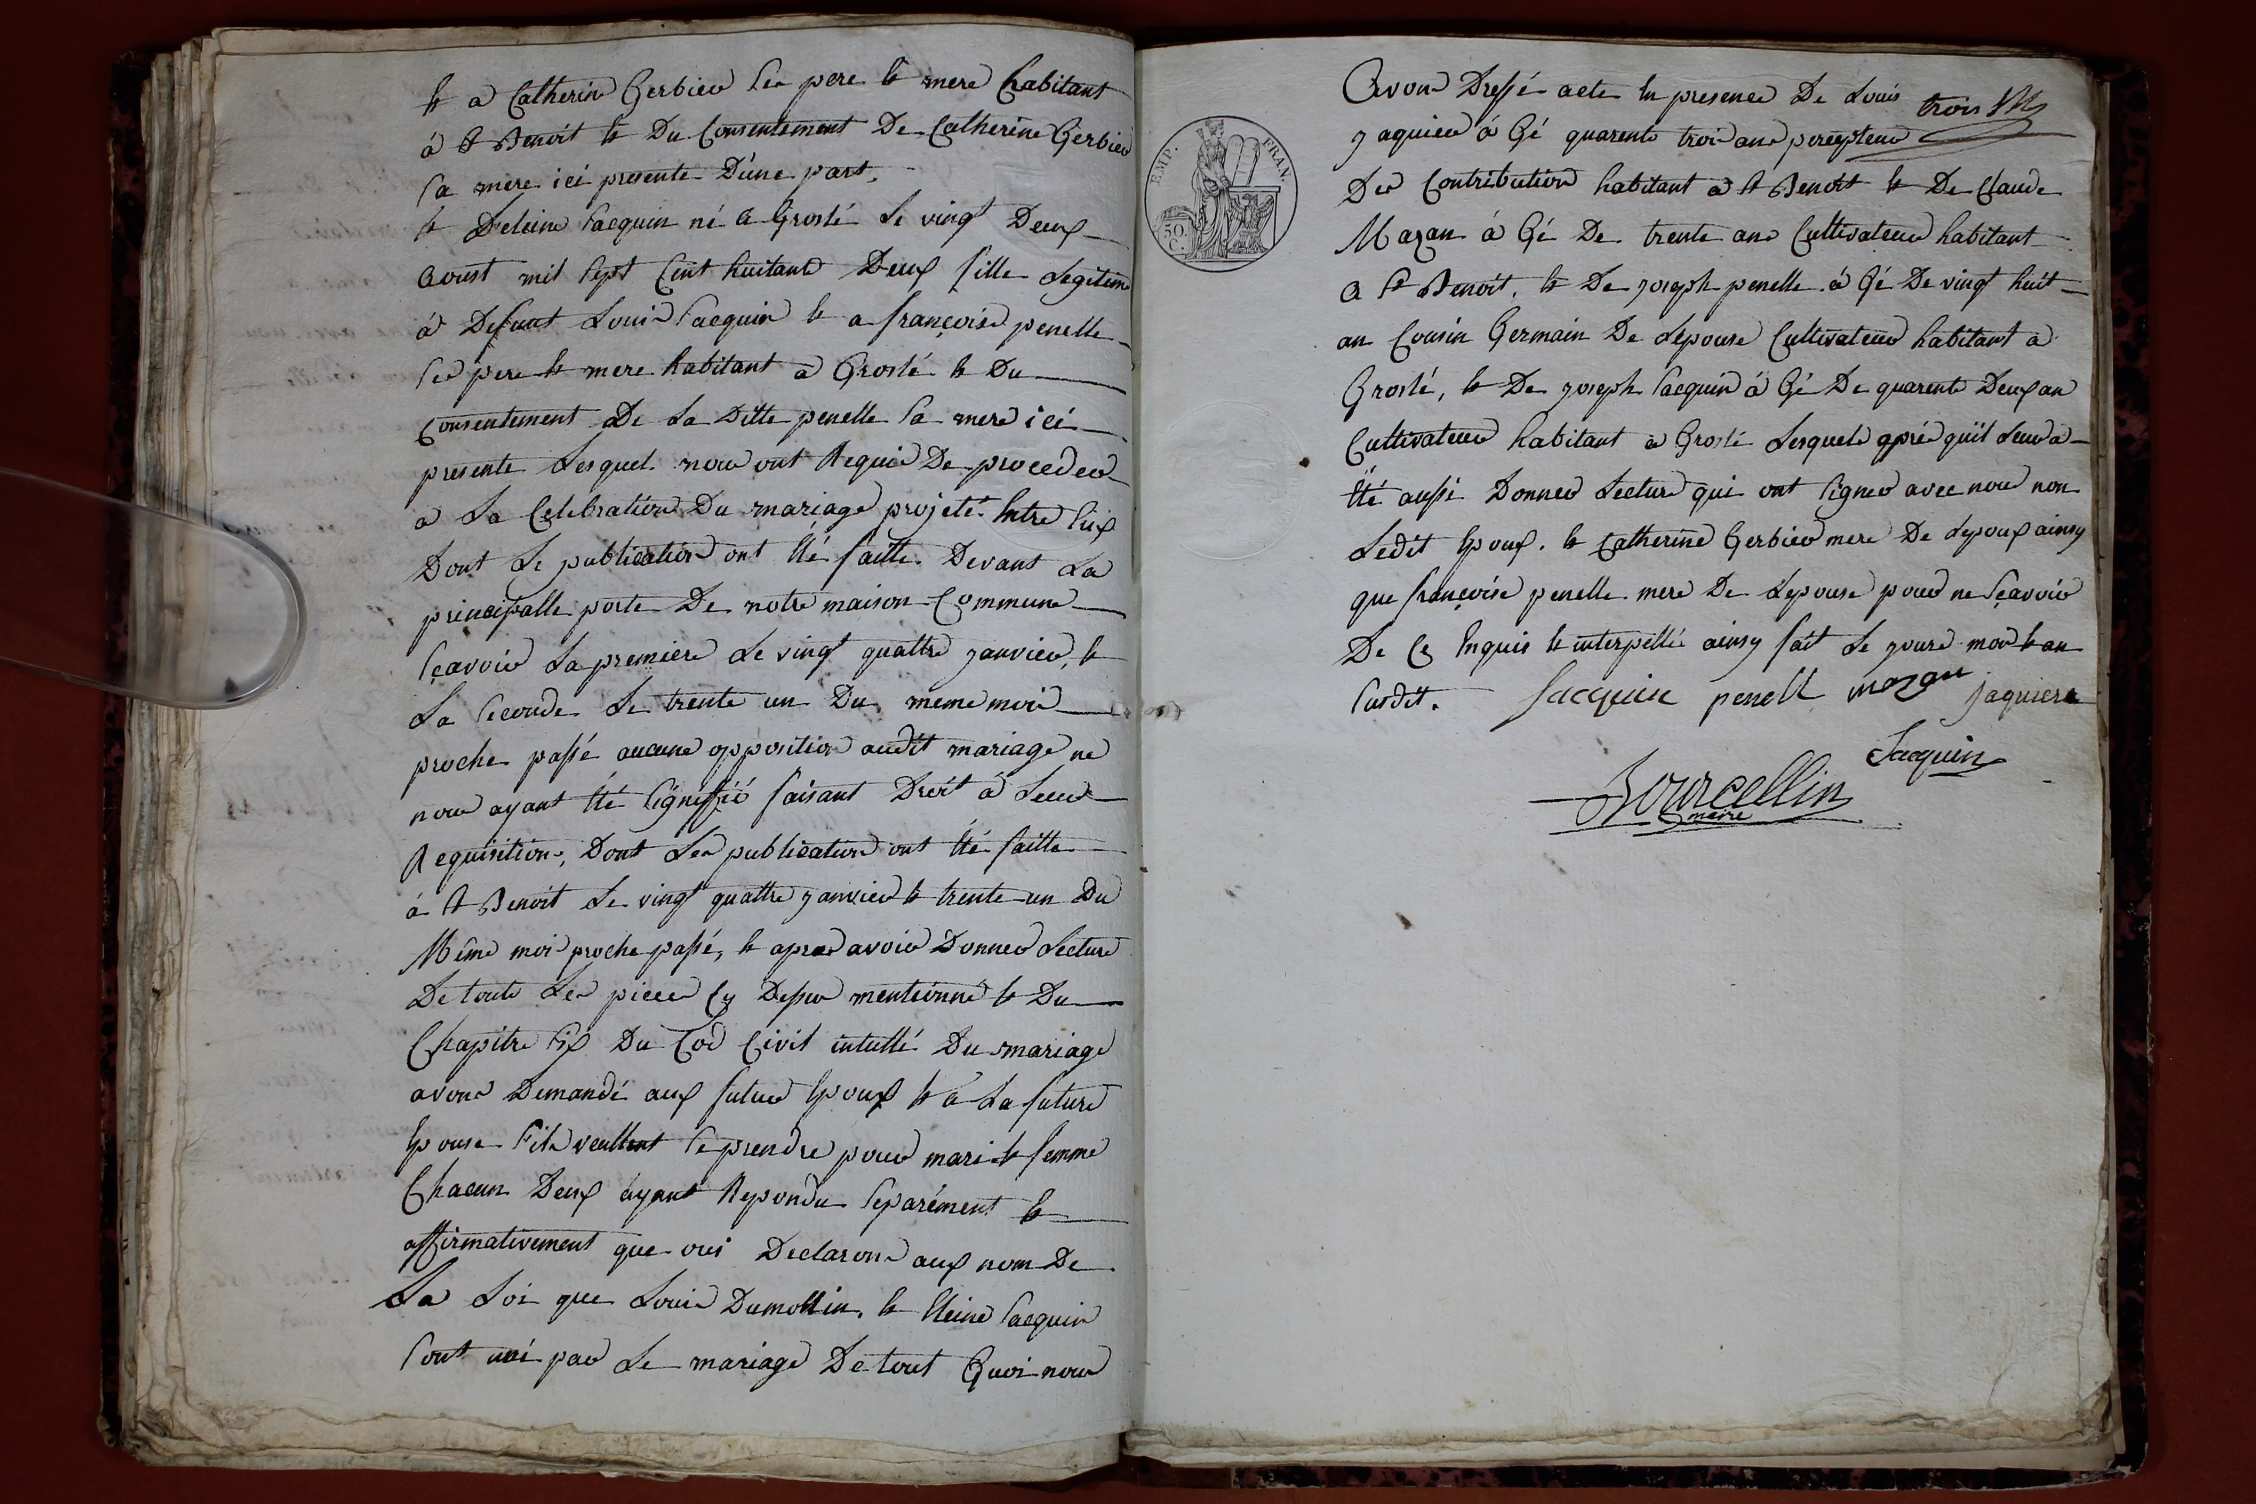 Et a Catherine Gerbier ses pere Et mere habitant
á St Benoit Et Du Consentement De Catherine Gerbier
sa mere ici presente D'une part.
Et Deleine sacquin né a Groslé Le vingt Deux
aoust mil sept Cent huitante Deux fille Legitime
á Defunt Louis sacquin Et a françoise penelle
ses pere Et mere habitant a Groslé Et Du
consentement De La Ditte penelle sa mere ici
presente Lesquel nous ont Requis De proceder
a La Celebration Du mariage projeté Entre Eux
Dont Le publication ont Eté faitte Devant La
principalle porte De notre maison Commune
sçavoir La premiere Le vingt quattre janvier, Et
La seconde Le trente un Du meme mois
proche passé aucune opposition audit mariage ne
nous ayant Eté signiffié faisant Droit á Leur
Requisition, Dont Les publication ont Eté faitte
á St Benoit Le vingt quattre janvier Et trente un Du
Même mois proche passé, Et apres avoir Donner Lecture
De toute Les pieces Cy Dessus mentionné Et Du
Chapitre six Du Cod Civil intutlé Du mariage
avons Demandé aux futur Epoux Et a La future
Epouse s'ils veullent se prendre pour mari Et femme
Chacun Deux ayant Repondu separément Et
affirmativement que oui Declarons aux nom De
La Loi que Louis Dumollin, Et Eleine sacquin
sont uni par Le mariage De tout Quoi nous
Avons Dressé acte En presence De Louis
trois
jaquier á Gé quarente trois ans percepteur
Des Contribution habitant a St Benoit Et De Claude
Mazan á Gé De trente ans Cultivateur habitant
a St Benoit, Et De joseph penelle á Gé De vingt huit
an Cousin Germain De Lepouse Cultivateur habitant a
Groslé, Et De joseph sacquin á Gé De quarente Deux an
Cultivateur habitant a Groslé Lesquels aprés quïl Leur a
Eté aussi Donner Lecture qui ont signer avec nous non
Ledit Epoux. Et Catherine Gerbier mere De Lepoux ainsy
que françoise penelle mere De Lepouse pour ne sçavoir
De Ce Enquis Et interpellé ainsy fait Le jours mois Et an
susdit. Sacquin penelle mazan jaquier
Sacquin
Bourcellin
maire
EMP. FRAN.
50. C.